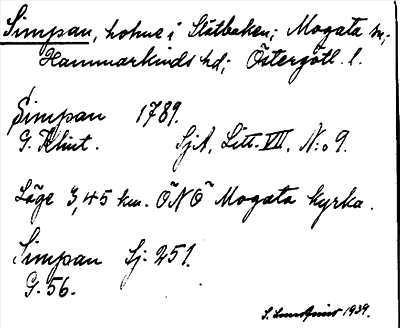 Simpan, holme i Slätbaken; Mogata sn;
Hammarkinds hd; Östergötl. l.
Simpan 1789.
G. Klint. SjA, Litt. VII. N:o 9.
Läge 3,45 km. ÖNÖ Mogata kyrka.
Simpan Sj. 251.
G. 56.
S. 1939.